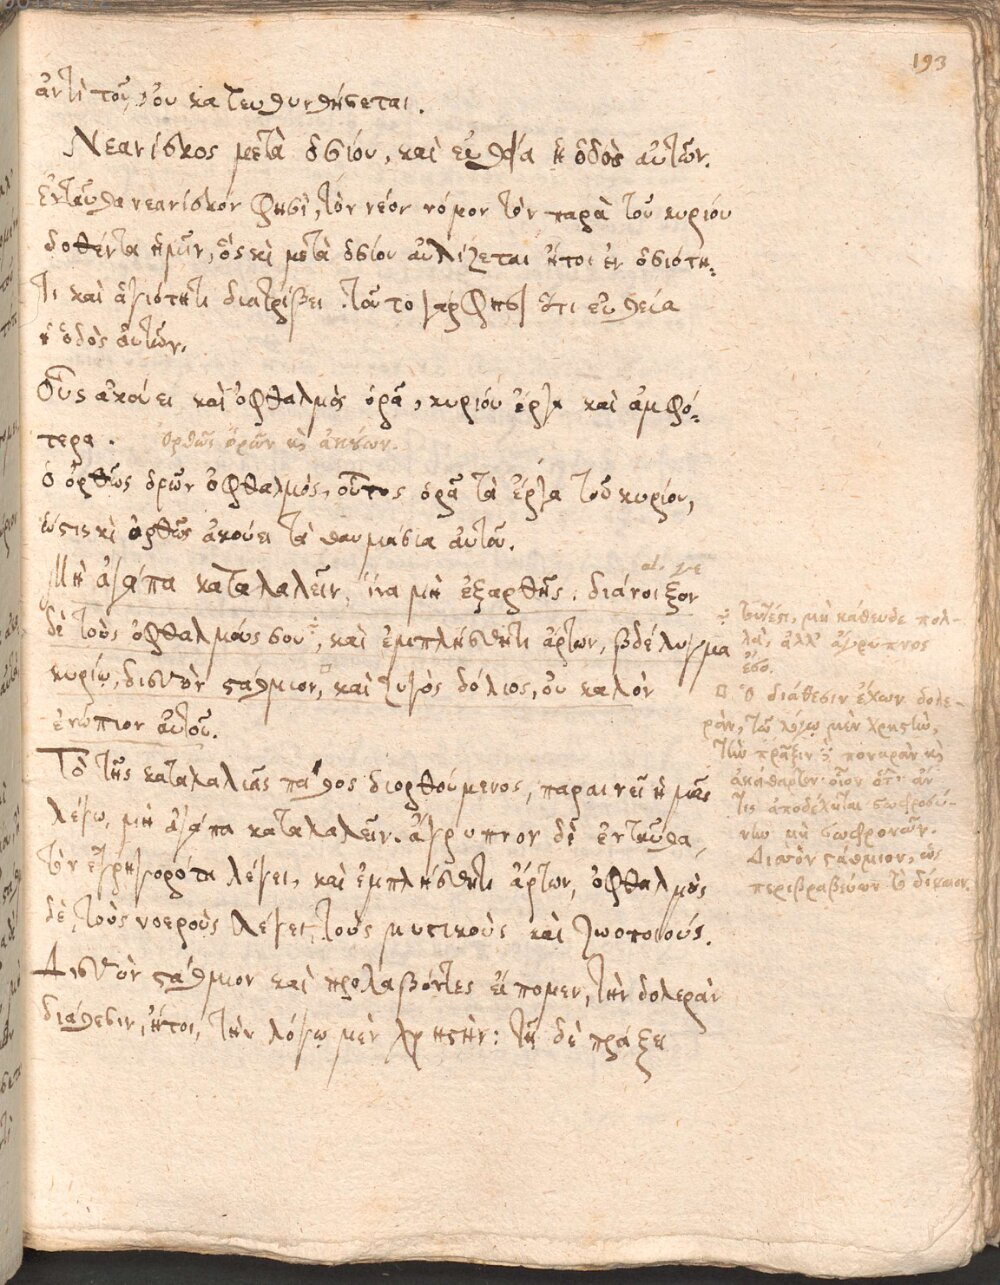 193
ἀντὶ τοῦ, οὐ κατευθυνθήσεται.
Νεανίσκος μετὰ ὁσίου, καὶ εὐθεῖα ἡ ὁδὸς αὐτῶν.
ἐνταῦθα νεανίσκον φησὶ, τὸν νέον νόμον τὸν παρὰ τοῦ κυρίου
δοθέντα ἡμῖν, ὃς κὶ μετὰ ὁσίου αὐλίζεται ἤτοι ἐν ὁσιότη-
τι καὶ ἁγιότητι διατρίβει. τοῦτο γάρ φησι ὅτι εὐθεία
ἡ ὁδὸς αὐτῶν.
Οὖς ἀκούει καὶ ὀφθαλμὸς ὁρᾶ, κυρίου ἔργα καὶ ἀμφό-
τερα. Ὀρθῶς ὁρῶν κὶ ἀκούων.
ὁ ὀρθῶς ὁρῶν ὀφθαλμὸς, οὗτος ὁρᾶ τὰ ἔργα τοῦ κυρίου,
ὥς τις κὶ ὀρθῶς ἀκούει τὰ θαυμάσια αὐτοῦ.
Μὴ ἀγάπα καταλαλεῖν, ἵνα μὴ ἐξαρθῇς. διάνοιξον
δὲ τοὺς ὀφθαλμούς σου, καὶ ἐμπλήσθητι ἄρτων, βδέλυγμα
κυρίῳ, δισσὸν στάθμιον, καὶ ζυγὸς δόλιος, οὐ καλὸν
ἐνώπιον αὐτοῦ.
Τὸ τῆς καταλαλιᾶς πάθος διορθούμενος, παραινεῖ ἡμᾶς
λέγων, μὴ ἀγάπα καταλαλεῖν. ἄγρυπνον δὲ ἐνταῦθα,
τὸν ἐγρηγορότα λέγει, καὶ ἐμπλήσθητι ἄρτων, ὀφθαλμοὺς
δὲ, τοὺς νοεροὺς λέγει, τοὺς μυστικοὺς καὶ ζωοποιούς.
Δισσὸν στάθμιον καὶ προλαβόντες εἴπομεν, τὴν δολερὰν
διάθεσιν, ἤτοι, τὴν λόγῳ μὲν χρηστήν: τῇ δὲ πράξει
÷ τουτέστι, μὴ κάθευδε πολ-
λὰ, ἀλλ' ἄγρυπνος
ἔσο.
□ Ὁ διάθεσιν ἔχων δολε-
ρὰν, τῷ λόγῳ μὲν χρηστὼ,
τὴν πρᾶξιν πονηρὰν κὶ
ἀκάθαρτον· οἷον ὅτι ἄν
τις ἀποδέχηται σωφροσύ-
νην μὴ σωφρονῶν.
Δισσὸν στάθμιον, ὡς
περιβραβεύων τὸ δίκαιον.